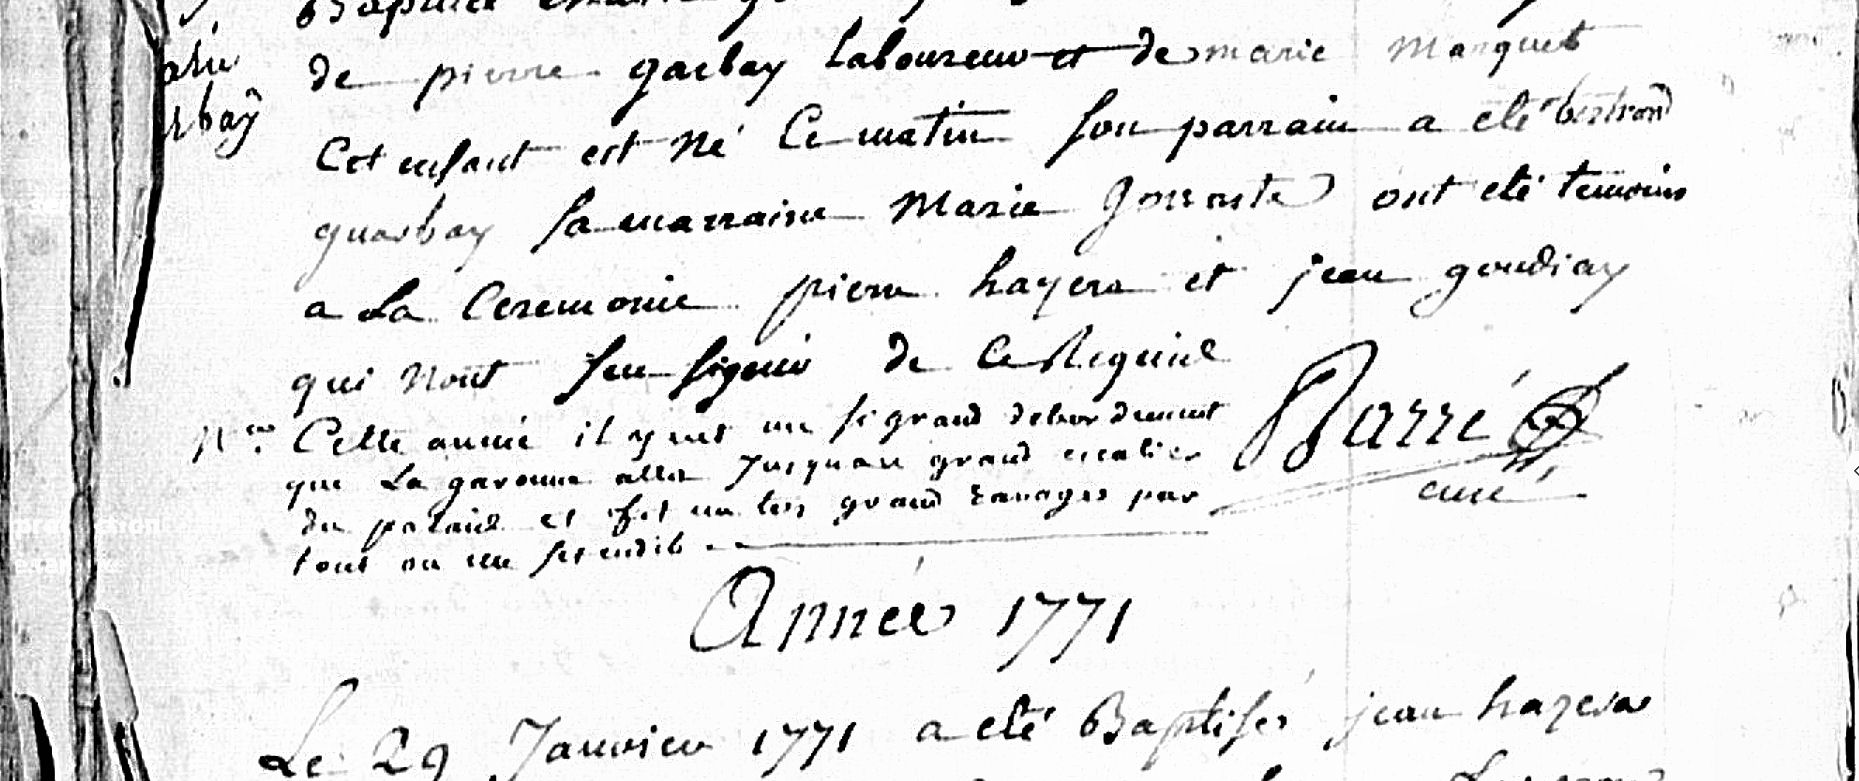 Baptisée marie
arie
rbaÿ
de pierre garbay Laboureur et de marie Marquet
Cet enfant est Né Ce matin son parrain a eté bertrand
guarbay sa marraine Marie ont eté temoins
a La Ceremonie pierre hayera et jean goudiay
qui Nont seu signer de Ce Requise
Cette année il y eut un si grand debordement
que La garonne alla Jusquau grand escalier
du palais et fit un tres grand ravages par
tout ou elle setendit
Barré
curé
Année 1771
Le 29 Janvier 1771 a eté Baptisé jean hazera